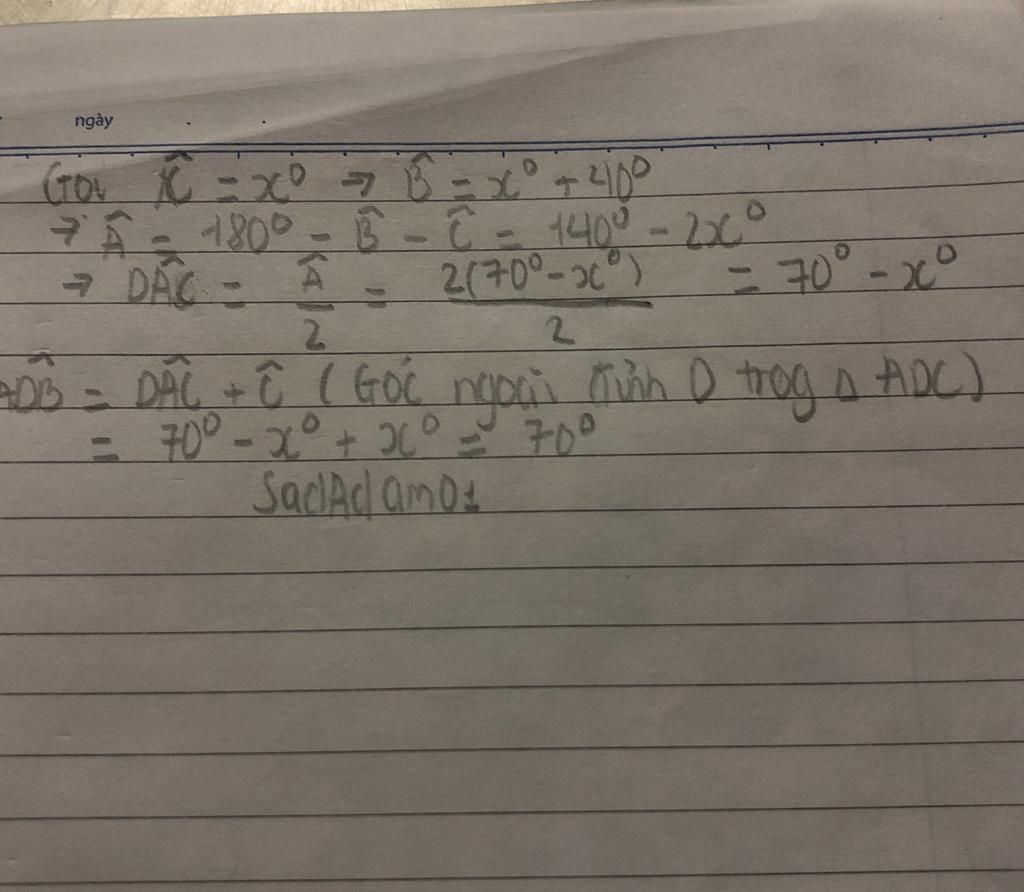 ngày
Gọi Ĉ = x⁰ → B̂ = x⁰ + 40⁰
→ Â = 180⁰ - B̂ - Ĉ = 140⁰ - 2x⁰
→ DÂC = Â/2 = 2(70⁰ - x⁰)/2 = 70⁰ - x⁰
ADB̂ = DÂC + Ĉ (Góc ngoài đỉnh D trog Δ ADC)
= 70⁰ - x⁰ + x⁰ = 70⁰
SadAdam01